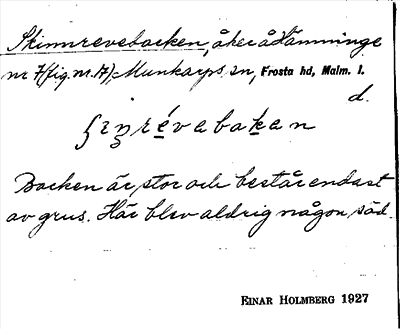 Skinnrevebacken, åker å Lämminge
nr 7 (fig. nr. 17), Munkarps sn, Frosta hd, Malm. l.
d.
ʃinrévabakan
Backen är stor och består endast
av grus. Här blev aldrig någon säd.
EINAR HOLMBERG 1927